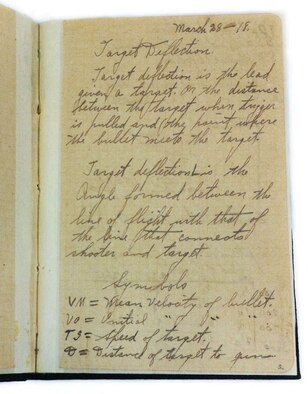 March 28 - 18.
Target Deflection
Target deflection is the lead
given a target. Or the distance
between the target when trigger
is pulled and the point where
the bullet meets the target.
Target deflection is the
Angle formed between the
line of flight with that of
the line that connects
shooter and target.
Symbols
VM = Mean Velocity of bullet.
VO = Initial " " "
TS = Speed of target.
D = Distance of target to gun